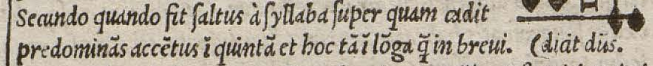 Secundo quando fit ſaltus à ſyllaba ſuper quam cadit
predominãs accẽtus ĩ quintã et hoc tã ĩ lõga q̃̄ in breui. (dicit dũs.